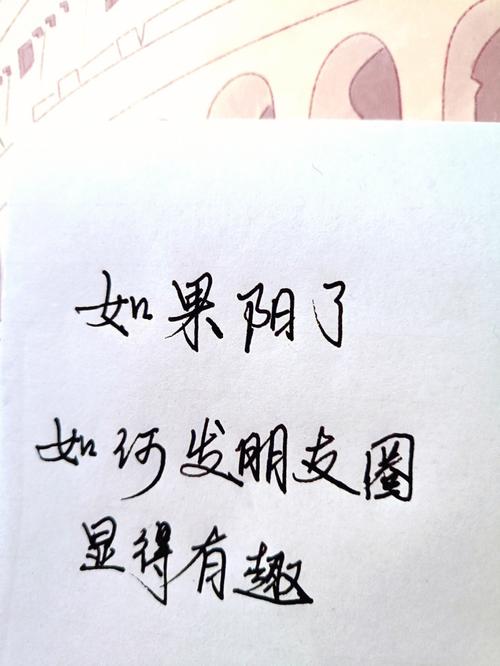 如果阳了
如何发朋友圈
显得有趣